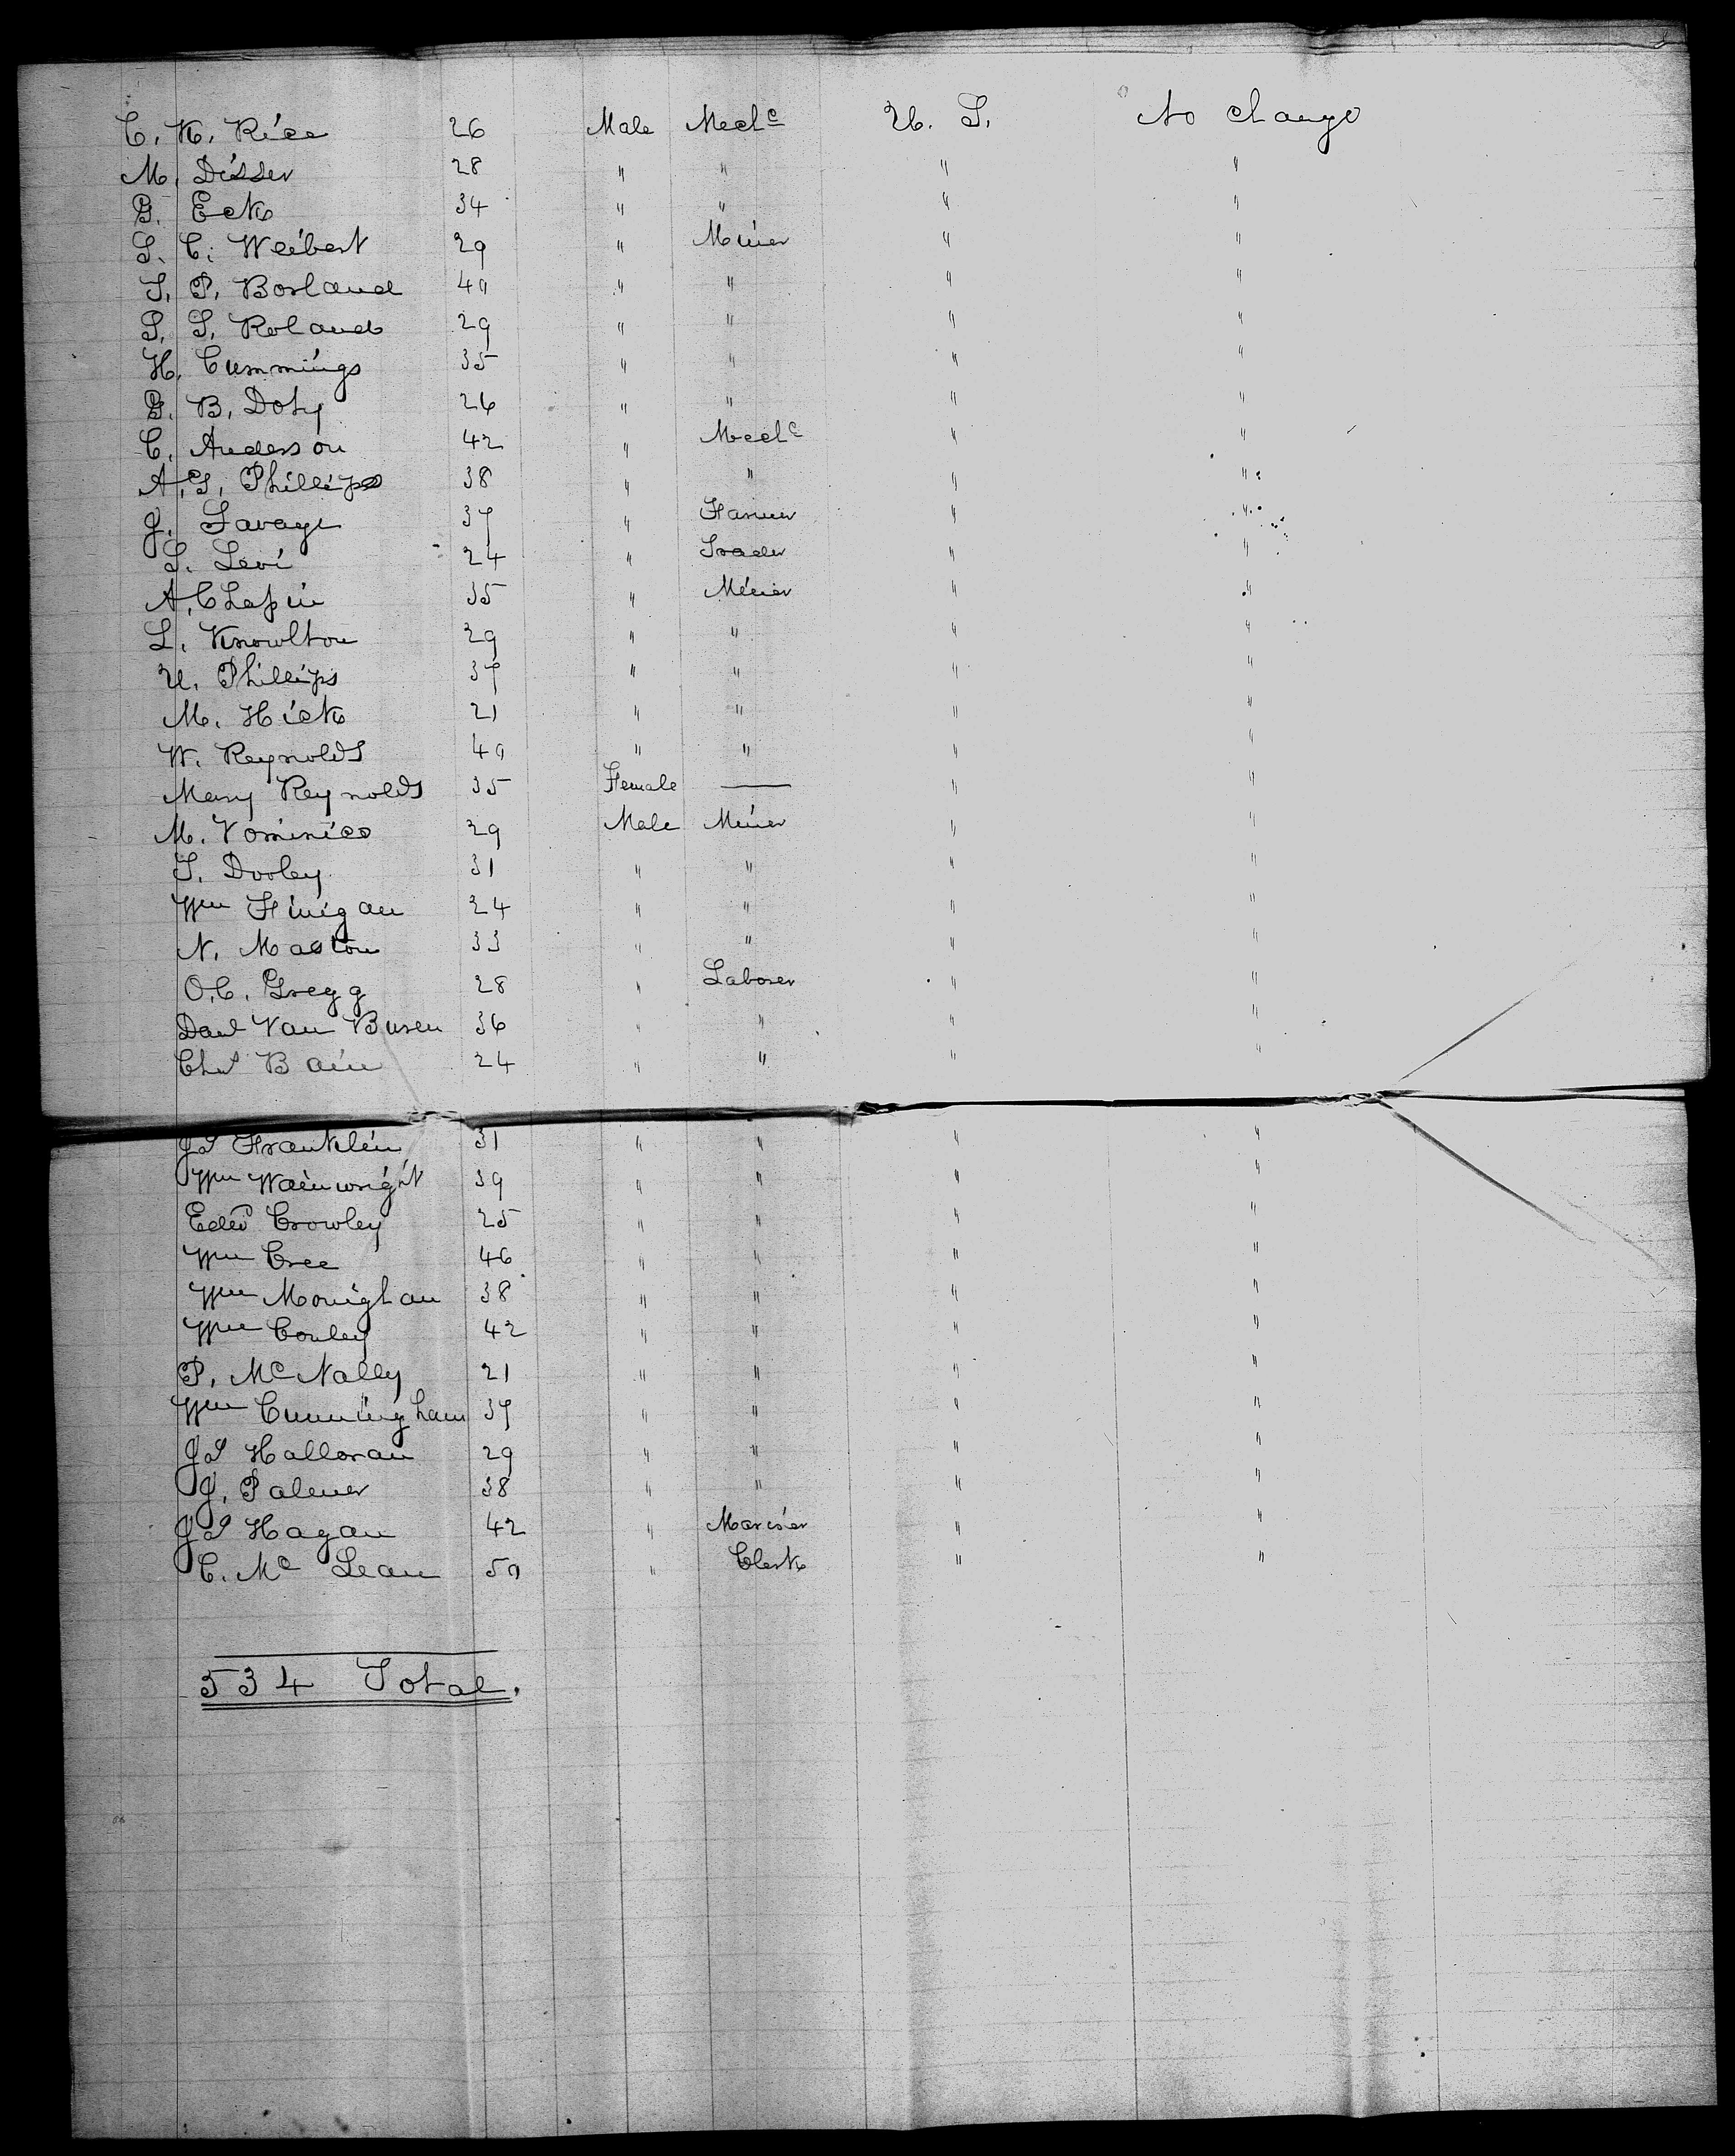 C. K. Rice 26 Male Mechc U. S. No change
M. Disser 28 " " " "
G. Eck 34 " " " "
S. C. Weibert 29 " Miner " "
T. P. Borland 40 " " " "
S. S. Roland 29 " " " "
H. Cummings 35 " " " "
G. B. Doty 26 " " " "
C. Anderson 42 " Mechc " "
A. S. Phillips 38 " " " "
J. Savage 37 " Farmer " "
S. Levi 24 " Trader " "
A. Chapin 35 " Miner " "
L. Knowlton 29 " " " "
U. Phillips 37 " " " "
M. Hick 21 " " " "
W. Reynolds 40 " " " "
Mary Reynolds 35 Female — " "
M. Vominico 29 Male Miner " "
T. Dooley 31 " " " "
Wm Finigan 24 " " " "
N. Maston 33 " " " "
O. C. Gregg 28 " Laborer " "
Danl Van Buren 36 " " " "
Chs Bain 24 " " " "
Js Franklin 31 " " " "
Wm Wainwright 39 " " " "
Edwd Crowley 25 " " " "
Wm Cree 46 " " " "
Wm Monighan 38 " " " "
Wm Conley 42 " " " "
P. McNally 21 " " " "
Wm Cunningham 37 " " " "
Js Halloran 29 " " " "
J. Palmer 38 " " " "
Js Hagan 42 " Mariner " "
C. Mc Lean 50 " Clerk " "
534 Total.